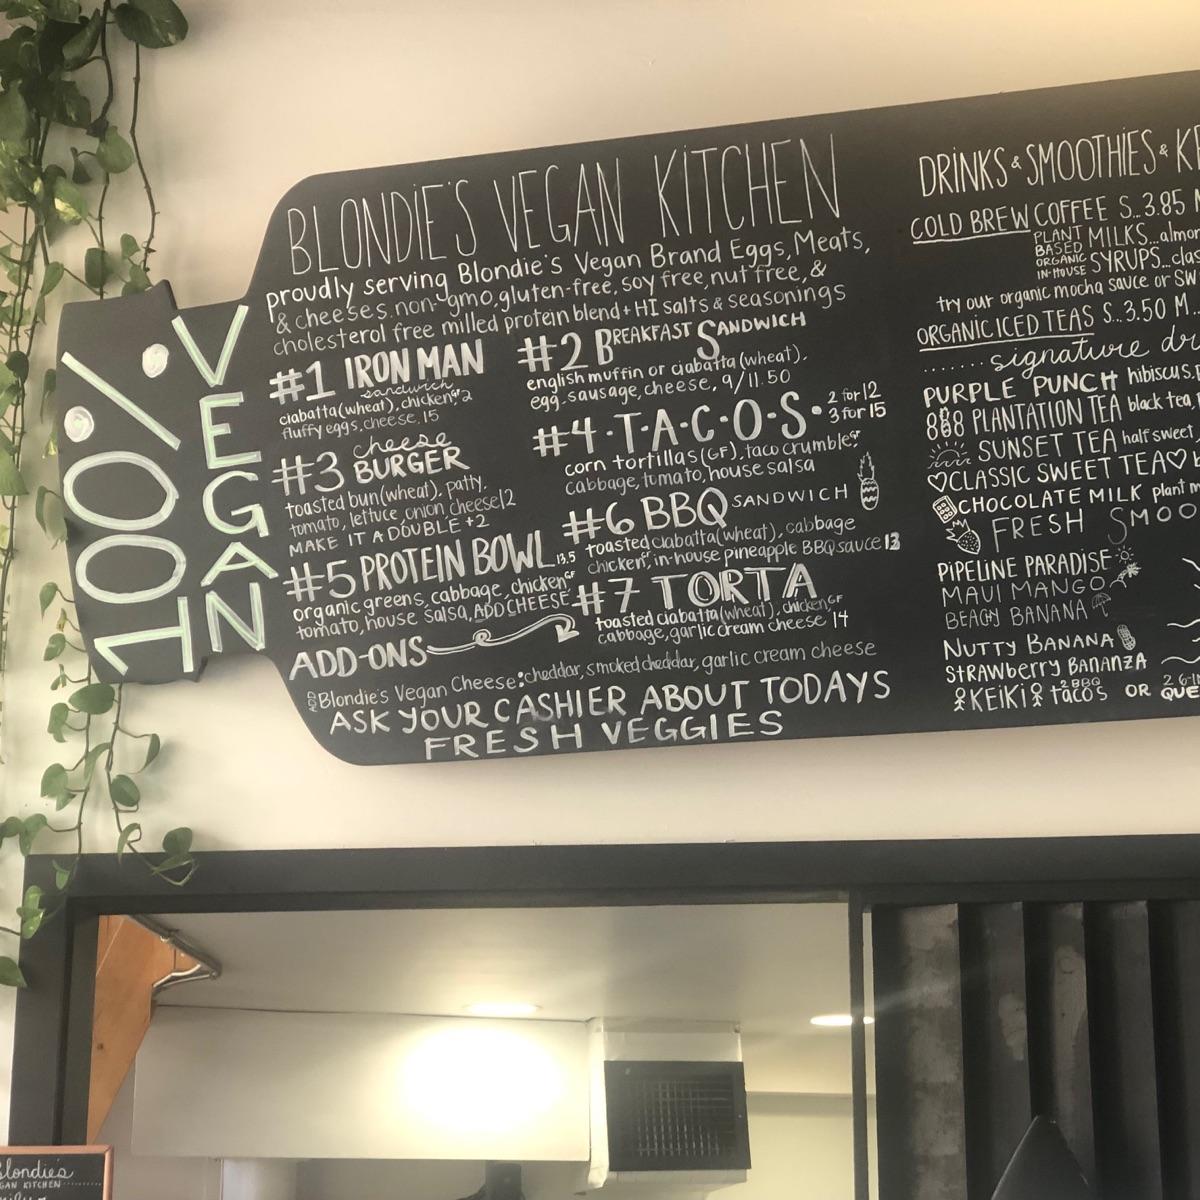 100% VEGAN
BLONDIE'S VEGAN KITCHEN
proudly serving Blondie's Vegan Brand Eggs, Meats,
& cheeses. non-gmo, gluten-free, soy free, nut free, &
cholesterol free milled protein blend + HI salts & seasonings
#1 IRON MAN
sandwich
ciabatta (wheat), chicken,
fluffy eggs, cheese. 15
#2 BREAKFAST SANDWICH
english muffin or ciabatta (wheat).
egg. sausage, cheese, 9/11.50
#3 cheese
BURGER
toasted bun (wheat), patty,
tomato, lettuce, onion, cheese 12
MAKE IT A DOUBLE +2
#4 ·T·A·C·O·S· 2 for 12
3 for 15
corn tortillas (GF), taco crumble GF
cabbage, tomato, house salsa
#5 PROTEIN BOWL 13.5
organic greens, cabbage, chicken GF
tomato, house salsa, ADD CHEESE
#6 BBQ SANDWICH
toasted ciabatta (wheat), cabbage
chicken GF, in-house pineapple BBQ sauce 13
#7 TORTA
toasted ciabatta (wheat), chicken, GF
cabbage, garlic cream cheese 14
ADD-ONS
Blondie's Vegan Cheese: cheddar, smoked cheddar, garlic cream cheese
ASK YOUR CASHIER ABOUT TODAYS
FRESH VEGGIES
DRINKS & SMOOTHIES & KE
COLD BREW COFFEE S...3.85 M
PLANT BASED MILKS...almon
ORGANIC IN-HOUSE SYRUPS...clas
try our organic mocha sauce or sw
ORGANIC ICED TEAS S...3.50 M
......signature dr
PURPLE PUNCH hibiscus,
PLANTATION TEA black tea,
SUNSET TEA half sweet
CLASSIC SWEET TEA
CHOCOLATE MILK plant m
FRESH SMOO
PIPELINE PARADISE
MAUI MANGO
BEACHY BANANA
NUTTY BANANA
STRAWBERRY BANANZA
KEIKI 2 BBQ tacos OR QUE
Blondie's
GAN KITCHEN